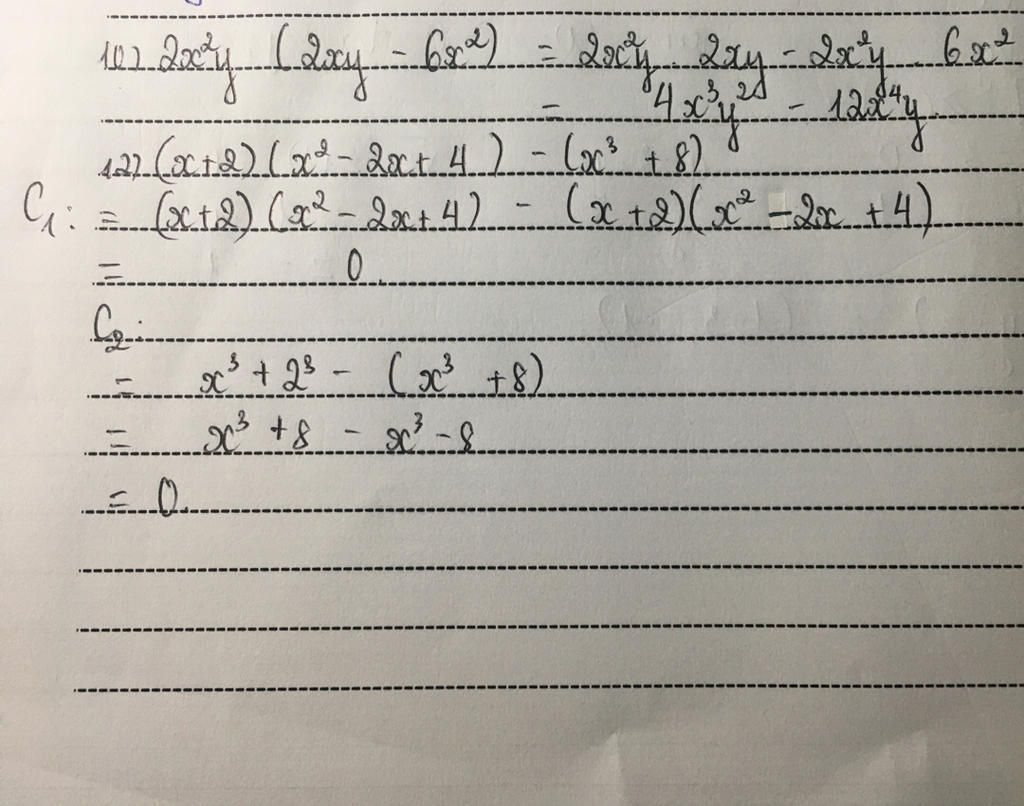 10) 2x²y (2xy - 6x²) = 2x²y . 2xy - 2x²y . 6x²
= 4x³y² - 12x⁴y.
12) (x+2)(x² - 2x + 4) - (x³ + 8)
C₁: = (x+2)(x² - 2x + 4) - (x + 2)(x² - 2x + 4)
= 0.
C₂:
= x³ + 2³ - (x³ + 8)
= x³ + 8 - x³ - 8
= 0.